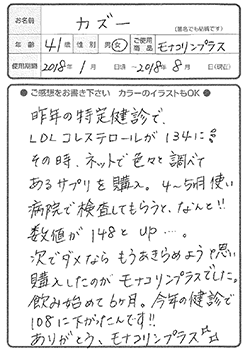 お名前 カズー (匿名でも結構です)
年齢 41歳 性別 男・女 ご使用商品 モナコリンプラス
使用期間 2018年1月 日頃 ～2018年8月 日(現在)
● ご感想をお書き下さい カラーのイラストもOK ●
昨年の特定健診で、
LDLコレステロールが134に
その時、ネットで色々と調べて
あるサプリを購入。4～5ヶ月使い
病院で検査してもらうと、なんと!!
数値が148とup…。
次でダメならもうあきらめようと思い
購入したのがモナコリンプラスでした。
飲み始めて6ヶ月。今年の健診で
108に下がったんです!!
ありがとう、モナコリンプラス